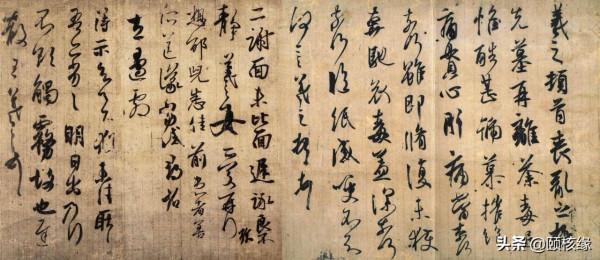 羲之頓首喪亂之極
先墓再離荼毒追
惟酷甚號慕摧絕
痛貫心肝痛當奈何
奈何雖即脩復未獲
奔馳哀毒益深奈何
奈何臨紙感哽不知
何言羲之頓首頓首
二謝面未比面遲詠良不
靜羲之女愛再拜
想邵兒悉佳前患者善
左邊劇
得示知足下猶未佳耿
耿吾亦劣劣明日出乃
行不欲觸霧故也遲
散王羲之頓首
头条 @颐核缘